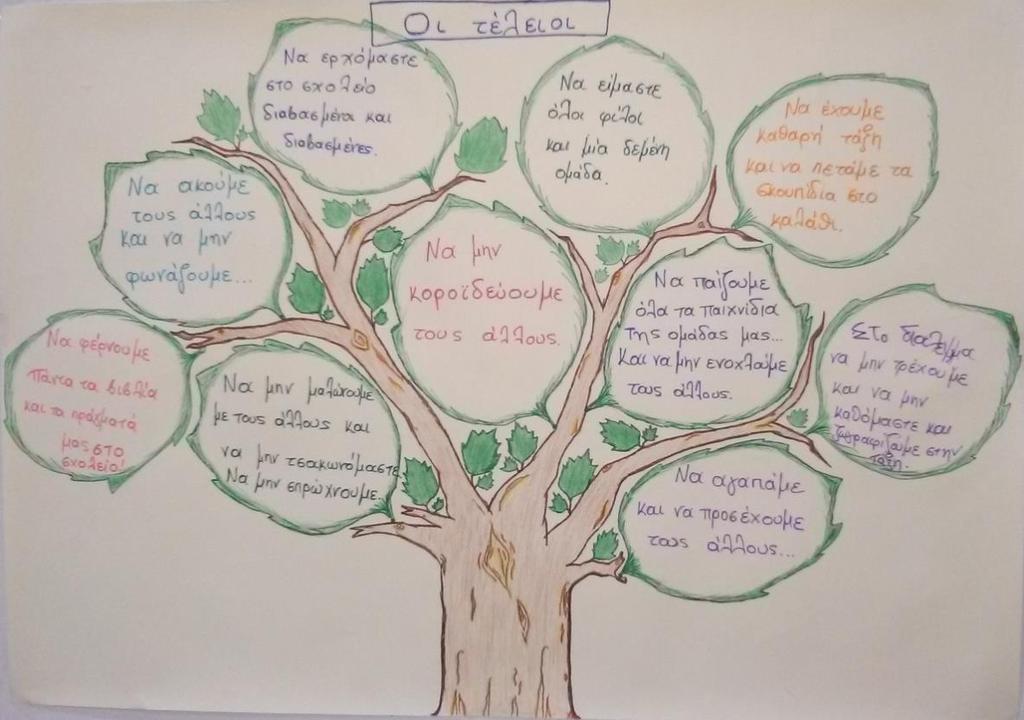 Οι τέλειοι
Να ερχόμαστε
στο σχολείο
διαβασμένοι και
διαβασμένες.
Να είμαστε
όλοι φίλοι
και μία δεμένη
ομάδα.
Να έχουμε
καθαρή τάξη
και να πετάμε τα
σκουπίδια στο
καλάθι.
Να ακούμε
τους άλλους
και να μην
φωνάζουμε...
Να μην
κοροϊδεύουμε
τους άλλους.
Να παίζουμε
όλα τα παιχνίδια
της ομάδας μας...
Και να μην ενοχλούμε
τους άλλους.
Στο διάλειμμα
να μην τρέχουμε
και να μην
καθόμαστε και
ζωγραφίζουμε στην
τάξη.
Να φέρνουμε
πάντα τα βιβλία
και τα πράγματά
μας στο
σχολείο!
Να μην μαλώνουμε
με τους άλλους και
να μην τσακωνόμαστε
Να μην σπρώχνουμε...
Να αγαπάμε
και να προσέχουμε
τους άλλους...